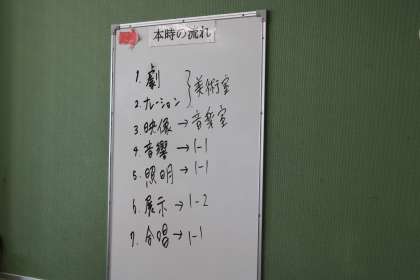 本時の流れ
1. 劇
2. ナレーション } 美術室
3. 映像 → 音楽室
4. 音響 → 1-1
5. 照明 → 1-1
6. 展示 → 1-2
7. 合唱 → 1-1